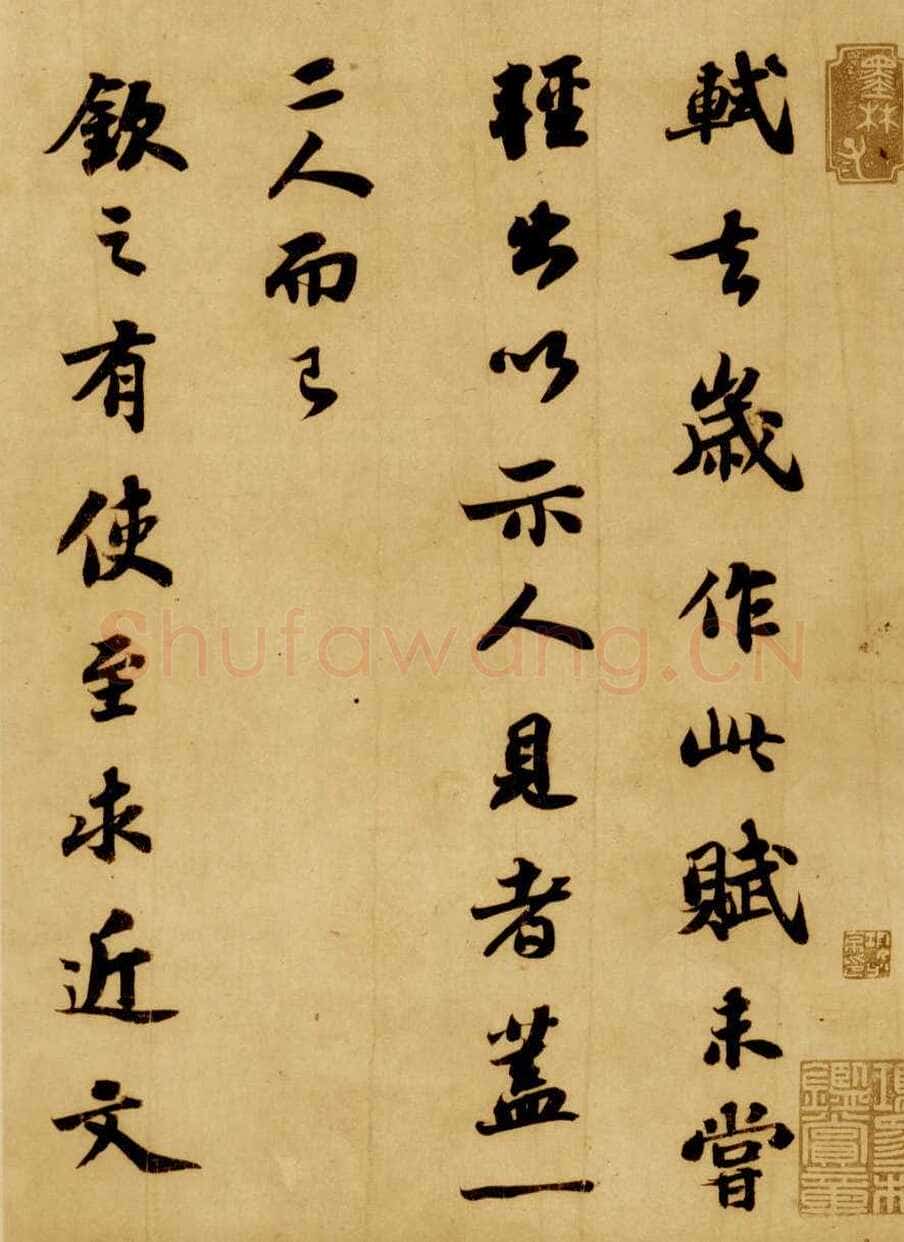 軾去歲作此賦未嘗
輕出以示人見者蓋一
二人而已
欽之有使至求近文
墨林
Shufawang.CN